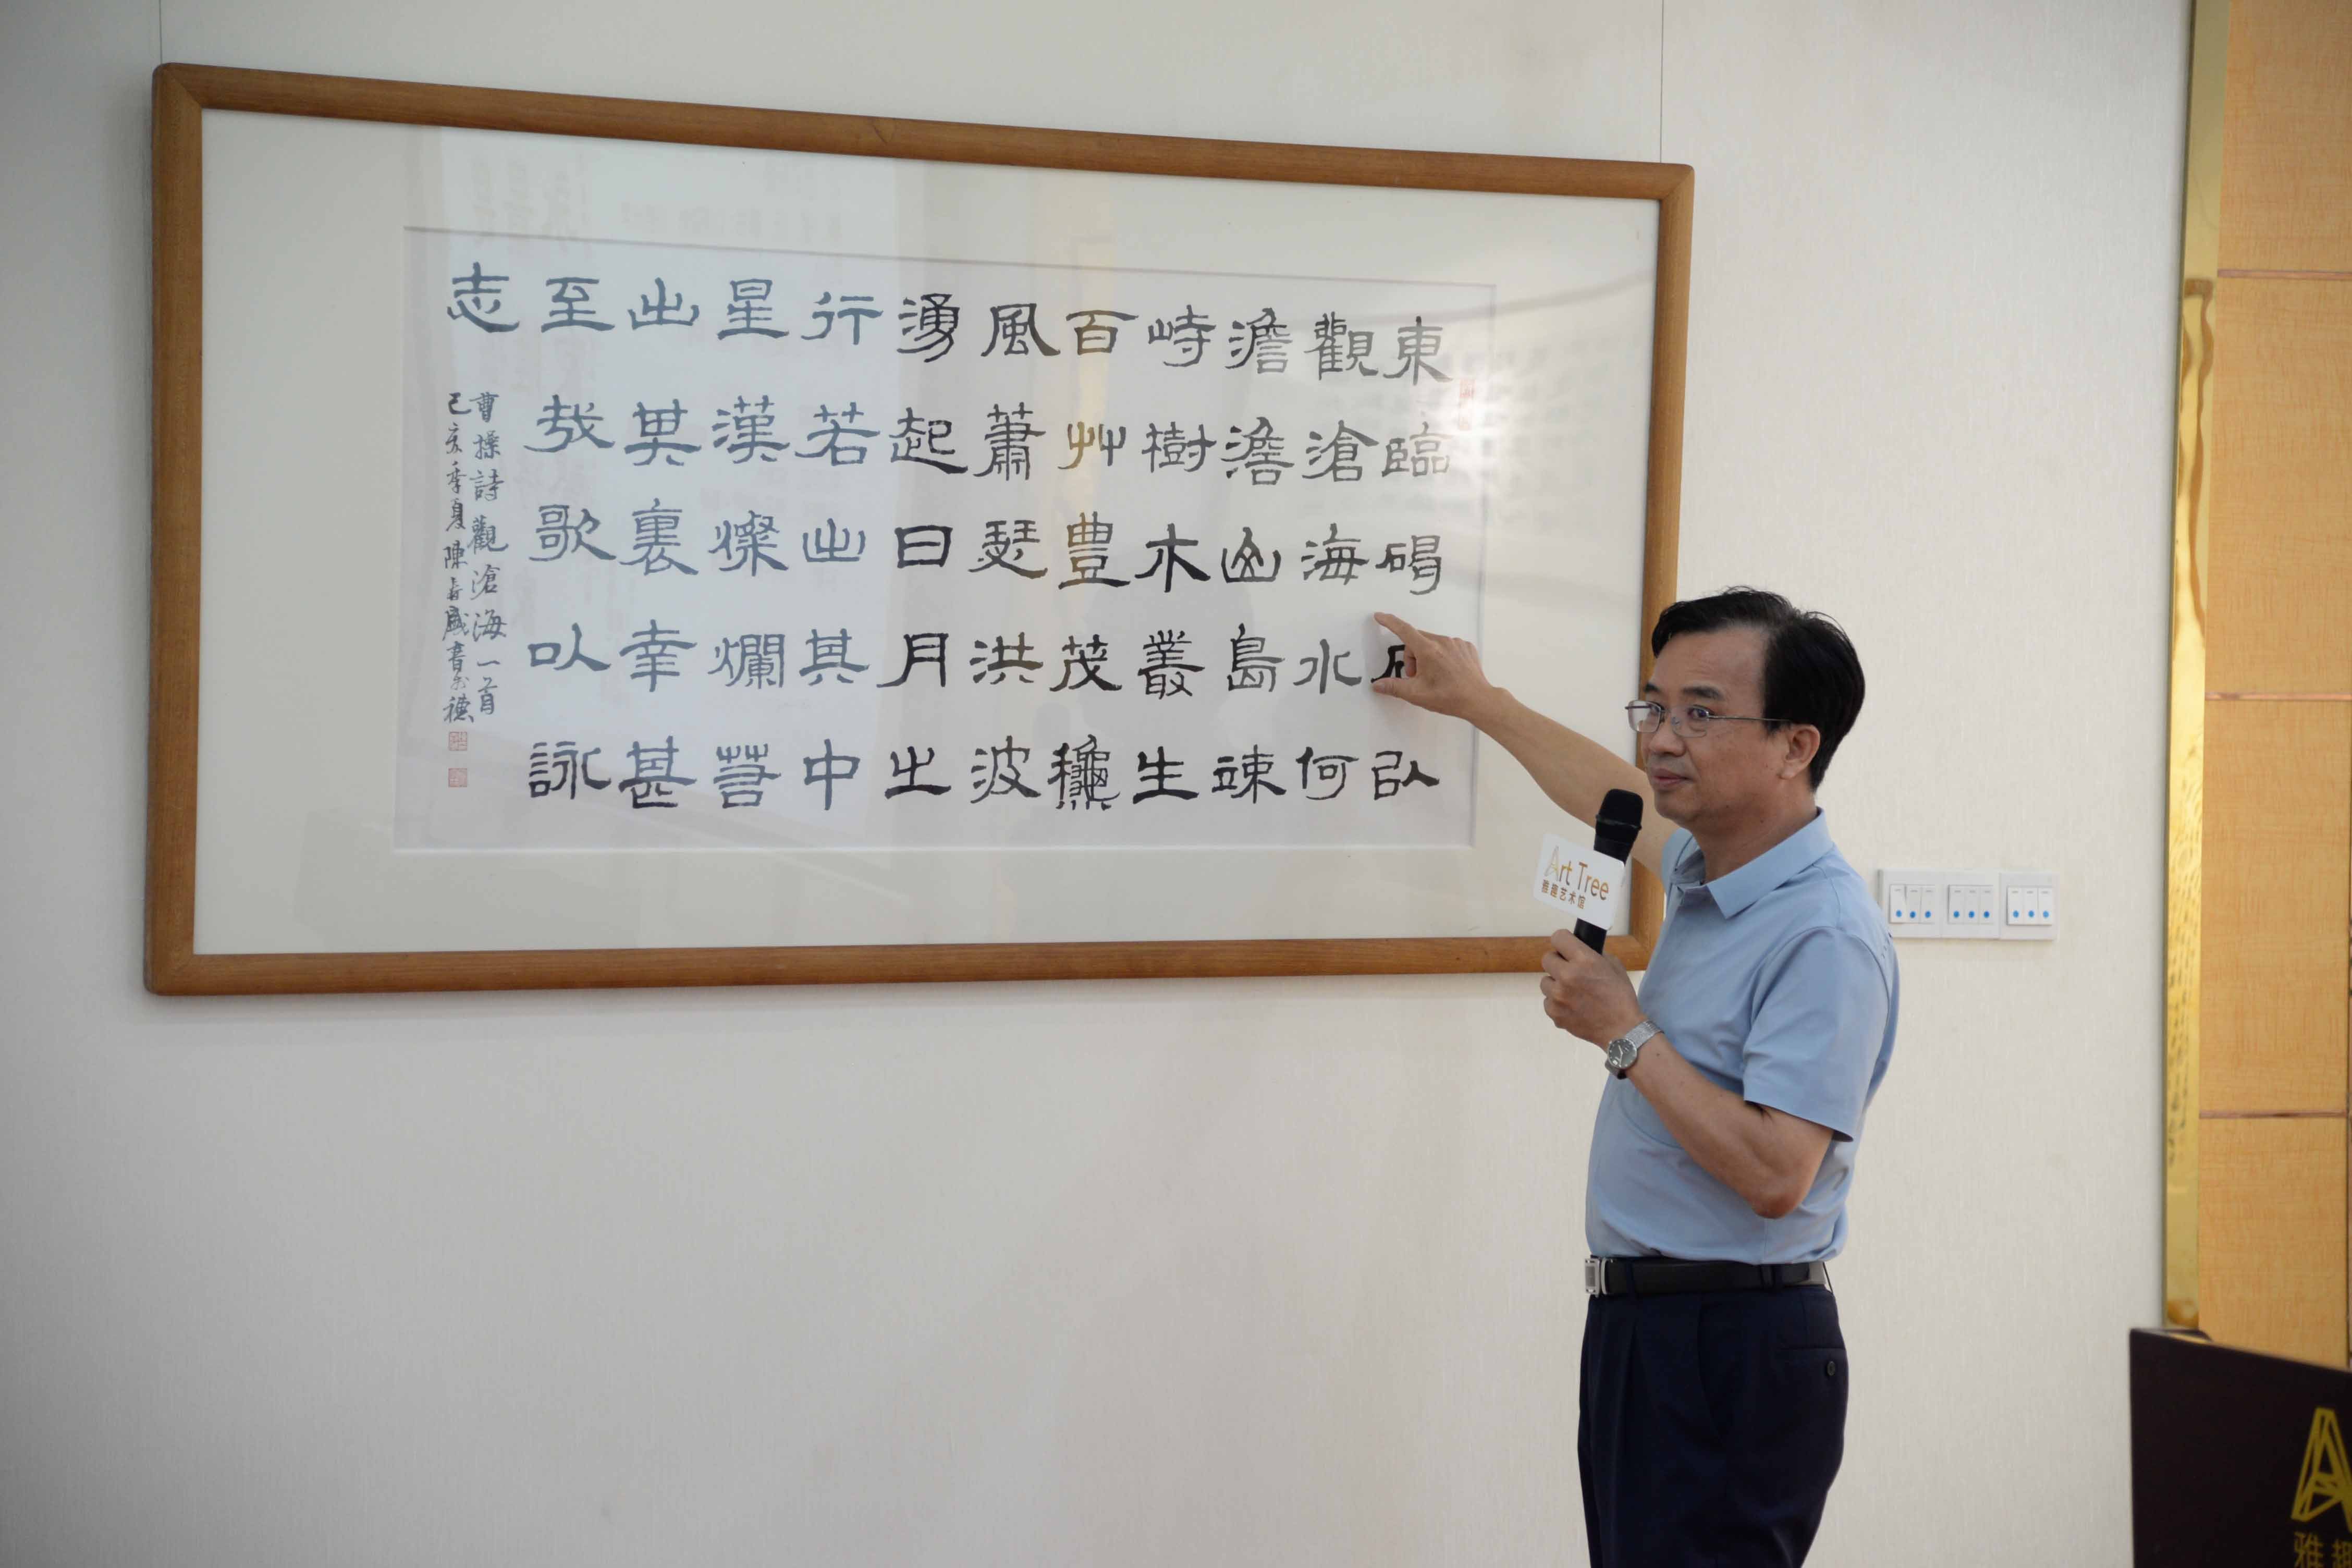 東臨碣石以
觀滄海水何
澹澹山島竦
峙樹木叢生
百艸豊茂龝
風蕭瑟洪波
湧起日月之
行若出其中
星漢燦爛若
出其裏幸甚
至哉歌以詠
志
曹操詩觀滄海一首
己亥季夏陳盛書於穗
Art Tree
雅趣艺术馆